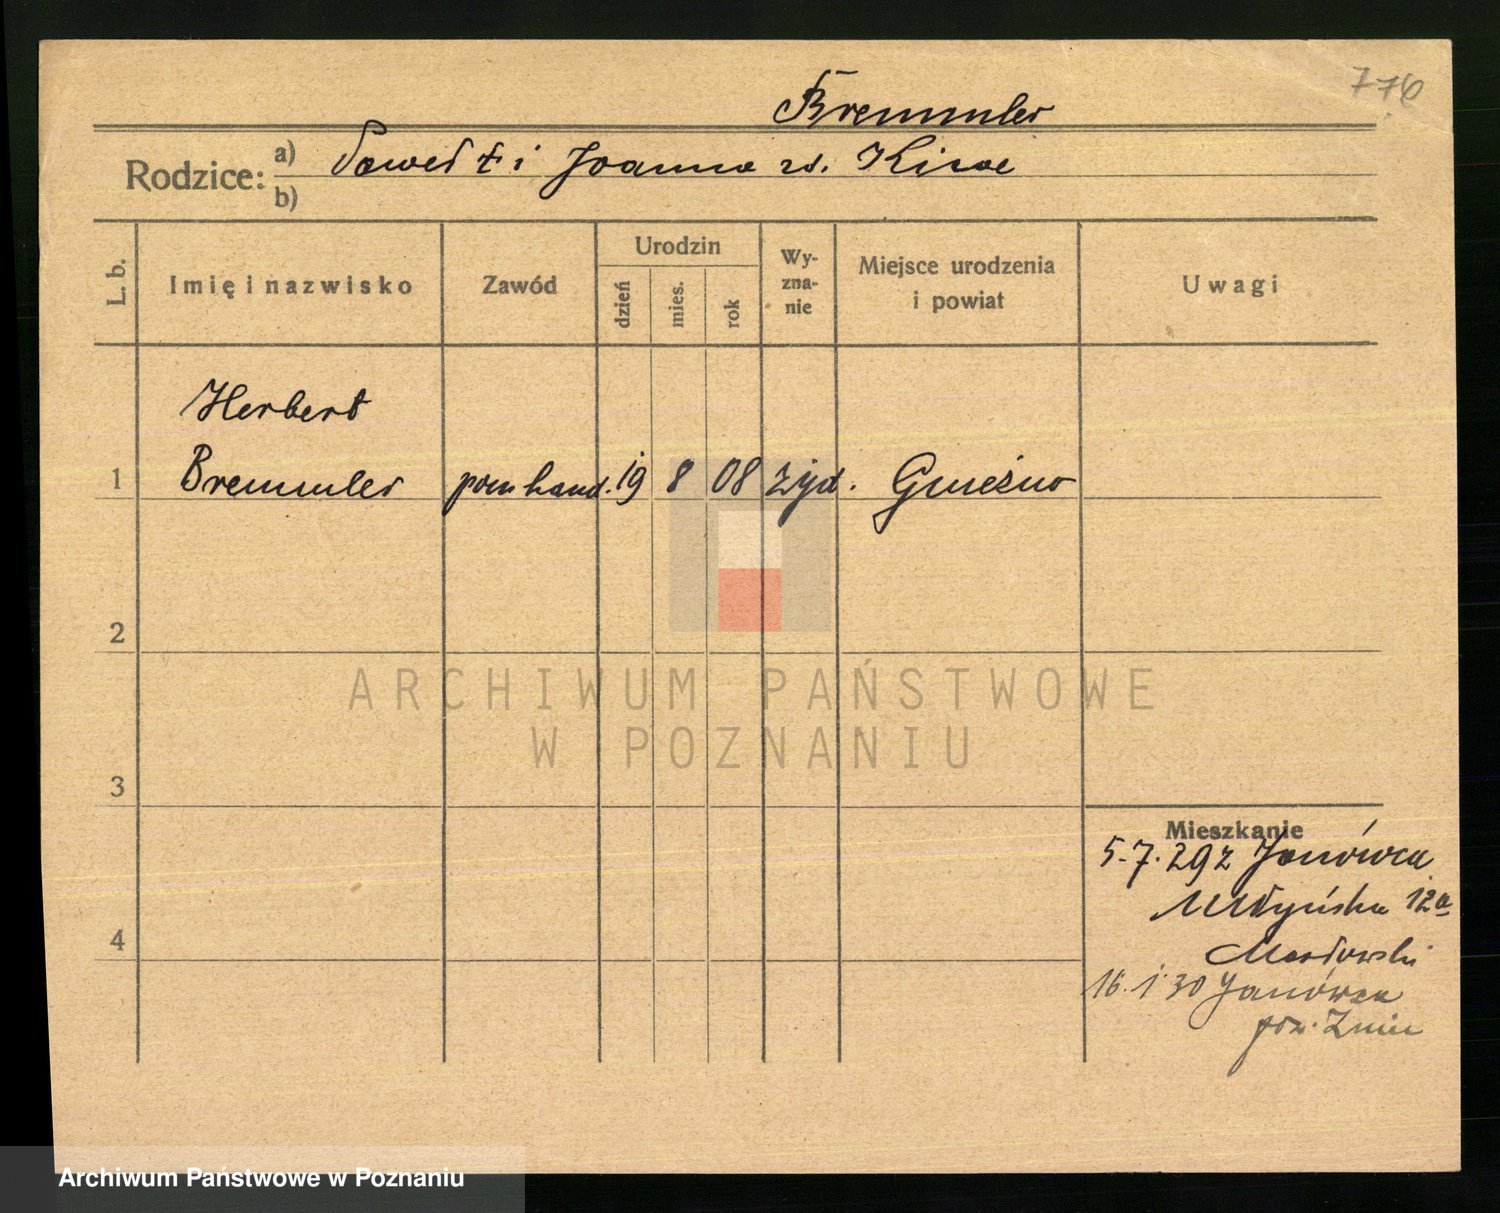 776
Bremmler
Rodzice: a) Paweł † i Joanna zd. Kiwe
b)
L. b.
Imię i nazwisko
Zawód
Urodzin
dzień
mies.
rok
Wy-
zna-
nie
Miejsce urodzenia
i powiat
Uwagi
Herbert
1 Bremmler pom hand. 19 8 08 żyd. Gniezno
2
3
4
Mieszkanie
5.7.29 z Janówca
Młyńska 12a
16.1.30 Janówca
pow. Żnin
ARCHIWUM PAŃSTWOWE
W POZNANIU
Archiwum Państwowe w Poznaniu